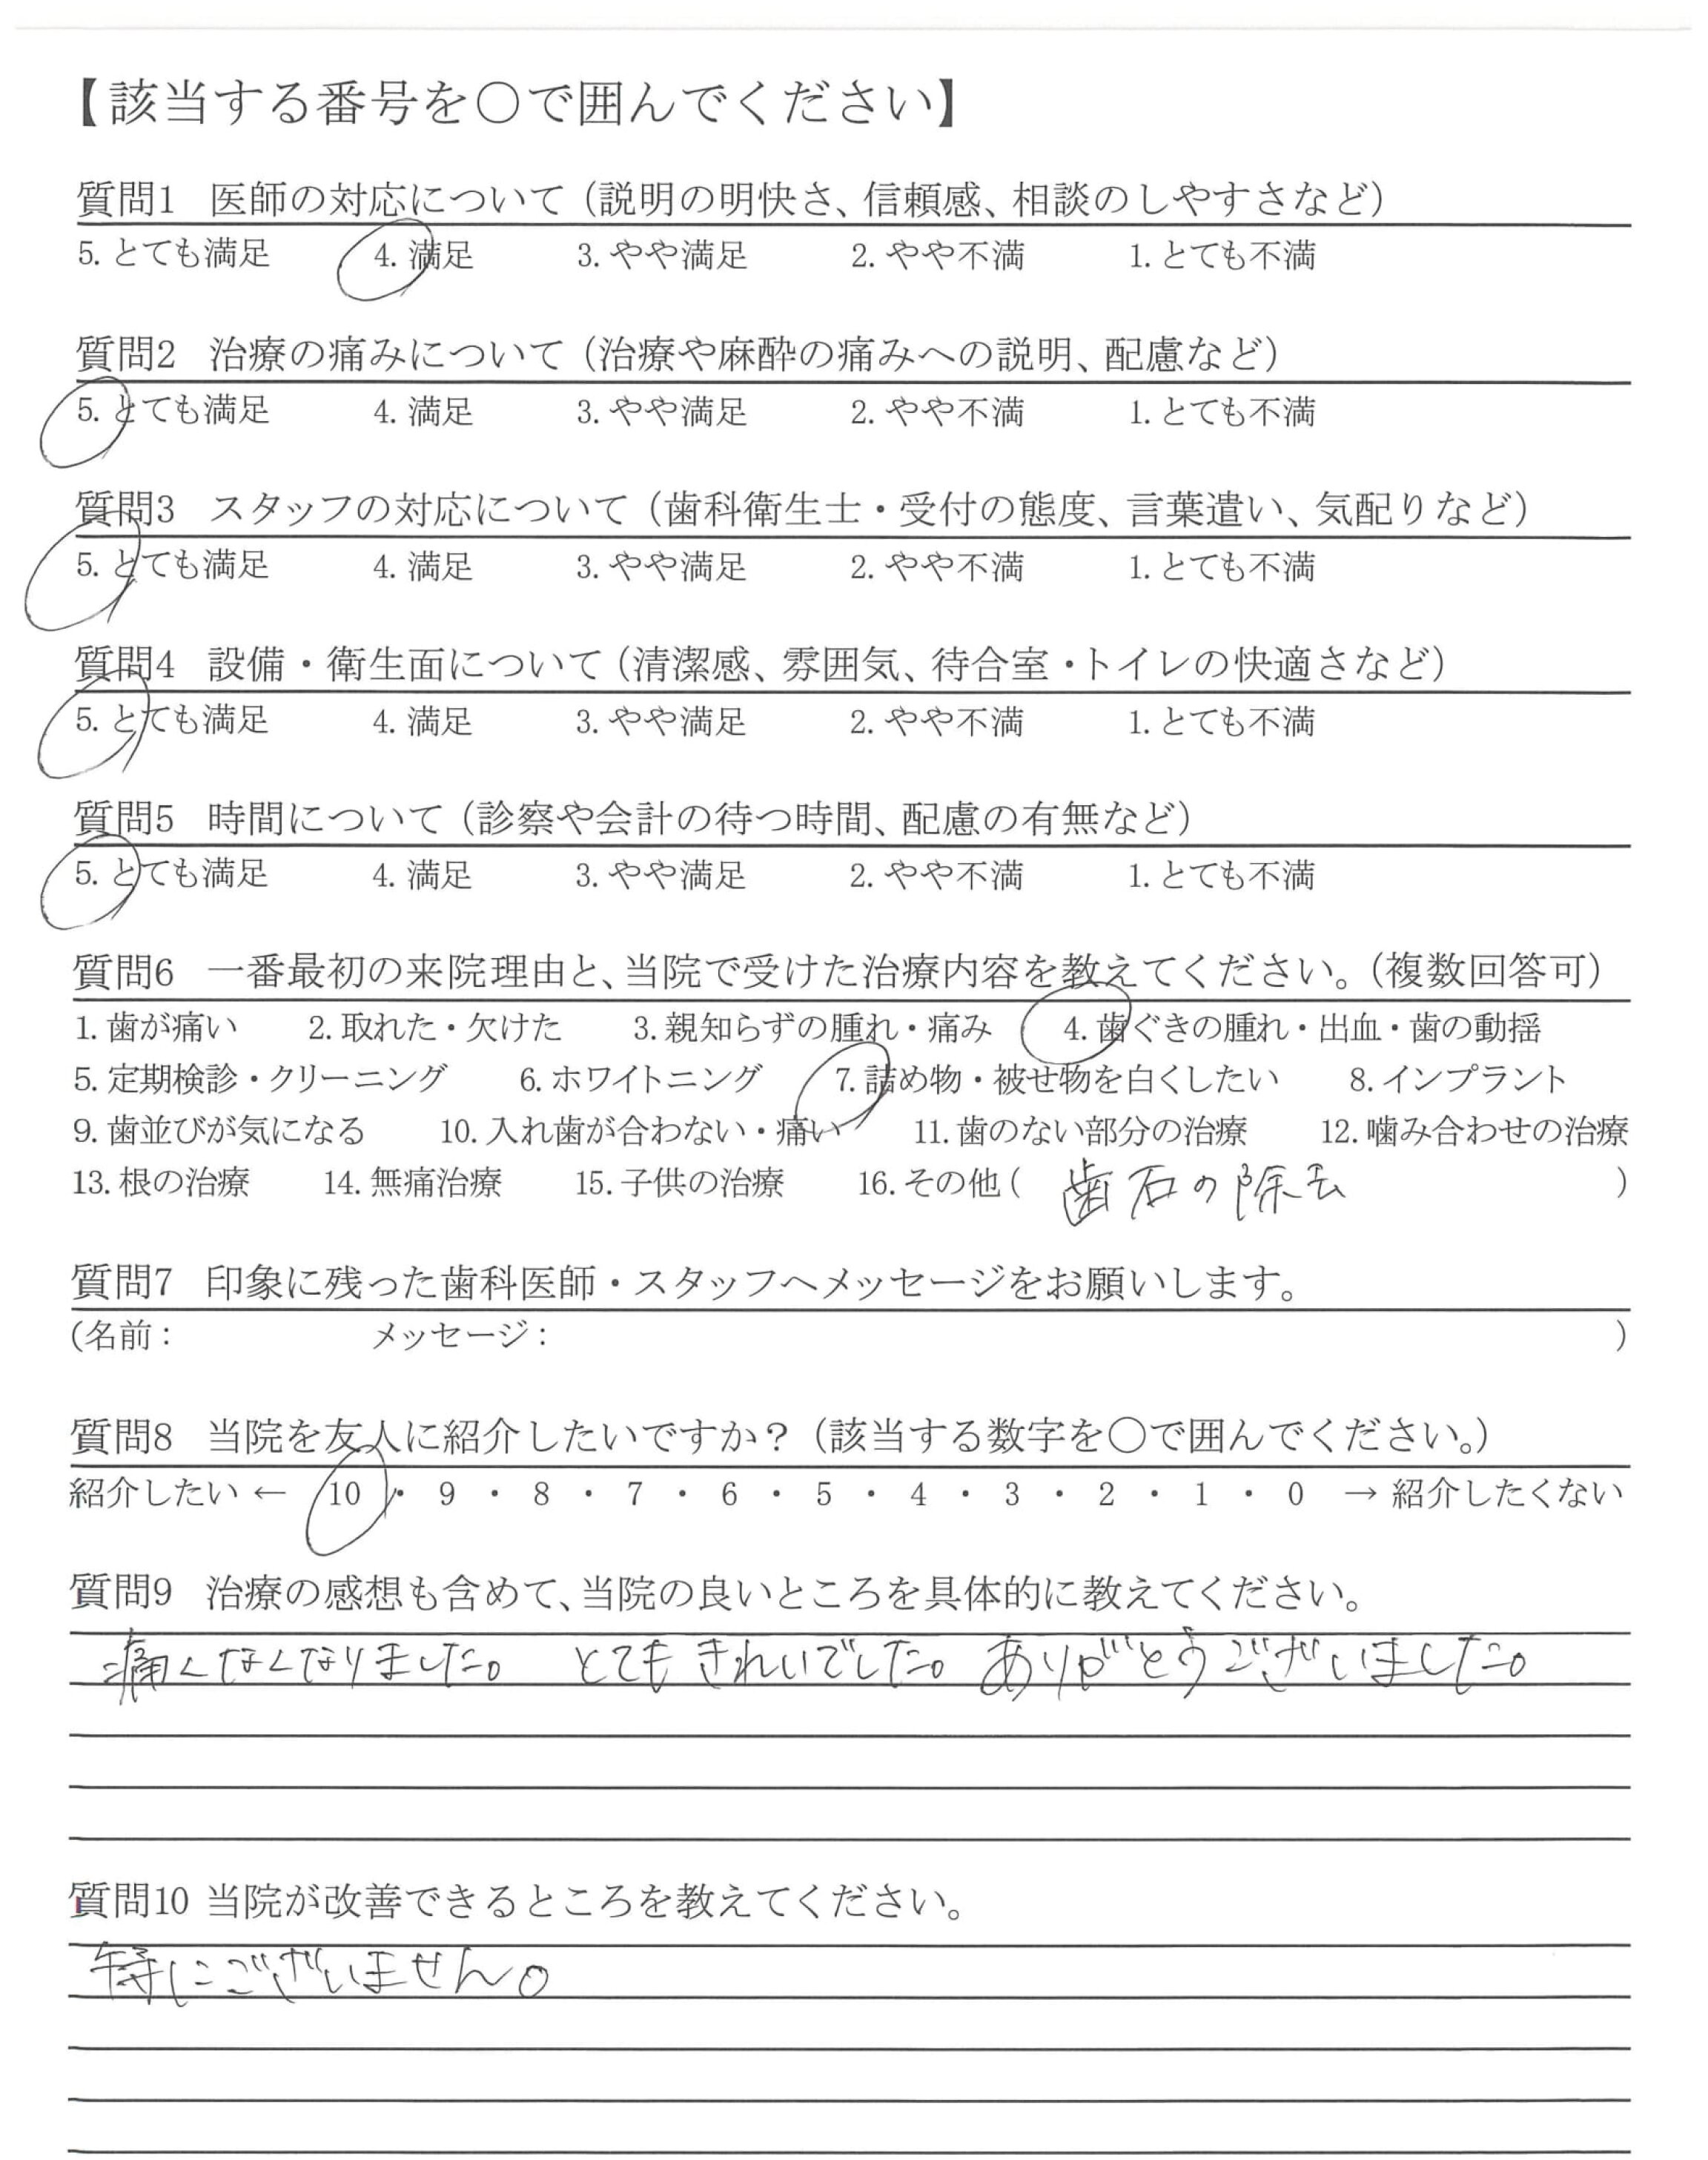 【該当する番号を○で囲んでください】
質問1 医師の対応について（説明の明快さ、信頼感、相談のしやすさなど）
5. とても満足 4. 満足 3. やや満足 2. やや不満 1. とても不満
質問2 治療の痛みについて（治療や麻酔の痛みへの説明、配慮など）
5. とても満足 4. 満足 3. やや満足 2. やや不満 1. とても不満
質問3 スタッフの対応について（歯科衛生士・受付の態度、言葉遣い、気配りなど）
5. とても満足 4. 満足 3. やや満足 2. やや不満 1. とても不満
質問4 設備・衛生面について（清潔感、雰囲気、待合室・トイレの快適さなど）
5. とても満足 4. 満足 3. やや満足 2. やや不満 1. とても不満
質問5 時間について（診察や会計の待つ時間、配慮の有無など）
5. とても満足 4. 満足 3. やや満足 2. やや不満 1. とても不満
質問6 一番最初の来院理由と、当院で受けた治療内容を教えてください。（複数回答可）
1. 歯が痛い 2. 取れた・欠けた 3. 親知らずの腫れ・痛み 4. 歯ぐきの腫れ・出血・歯の動揺
5. 定期検診・クリーニング 6. ホワイトニング 7. 詰め物・被せ物を白くしたい 8. インプラント
9. 歯並びが気になる 10. 入れ歯が合わない・痛い 11. 歯のない部分の治療 12. 噛み合わせの治療
13. 根の治療 14. 無痛治療 15. 子供の治療 16. その他（ 歯石の除去 ）
質問7 印象に残った歯科医師・スタッフへメッセージをお願いします。
（名前： メッセージ： ）
質問8 当院を友人に紹介したいですか？（該当する数字を○で囲んでください。）
紹介したい ← 10 ・ 9 ・ 8 ・ 7 ・ 6 ・ 5 ・ 4 ・ 3 ・ 2 ・ 1 ・ 0 → 紹介したくない
質問9 治療の感想も含めて、当院の良いところを具体的に教えてください。
痛くなくなりました。 とてもきれいでした。ありがとうございました。
質問10 当院が改善できるところを教えてください。
特にございません。